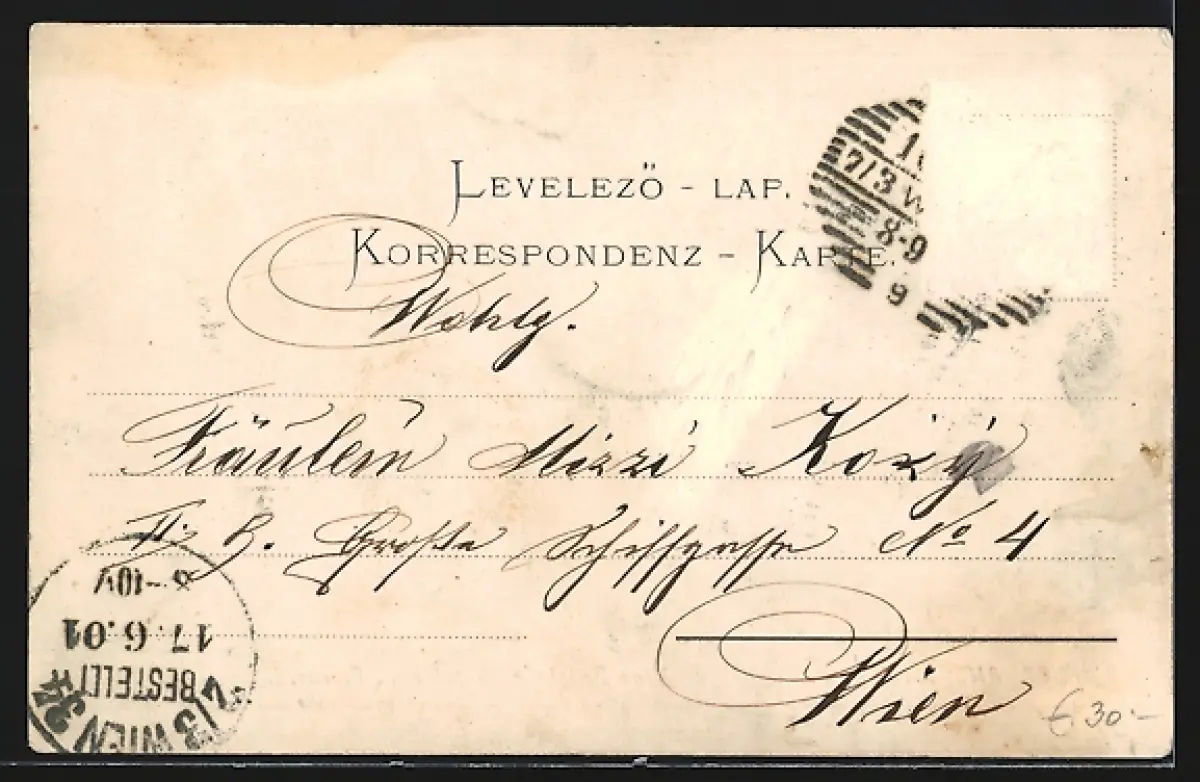 LEVELEZŐ - LAP.
KORRESPONDENZ - KARTE.
7/3 W
8-9
9
Wohlg.
Fräulein Mizzi
II. B. Große Schiffgasse No 4
Wien
8-10V
17.6.01
BESTELLT
2/3 WIEN
€ 30.-